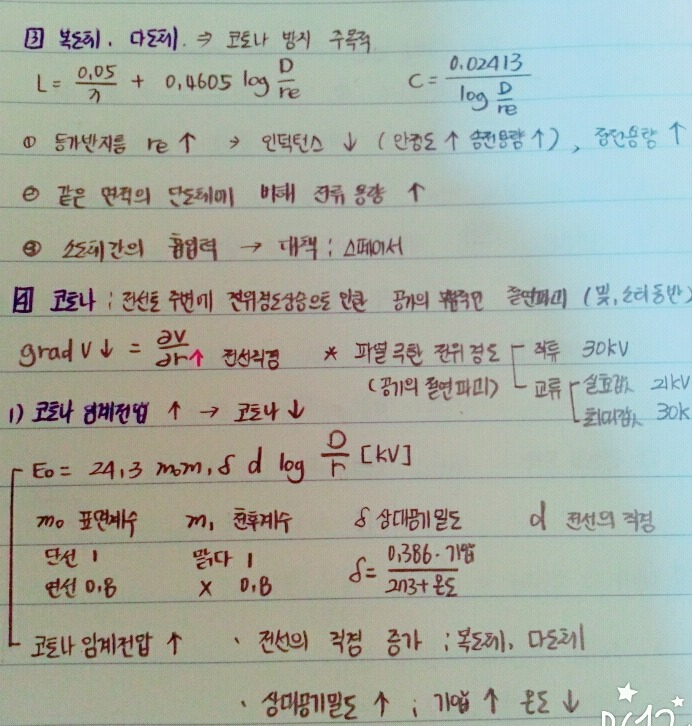 3 복도체, 다도체. ⇒ 코로나 방지 주목적
L = 0.05/n + 0.4605 log D/re    C = 0.02413 / log D/re
① 등가반지름 re ↑ → 인덕턴스 ↓ (안정도 ↑ 송전용량 ↑), 정전용량 ↑
② 같은 면적의 단도체에 비해 전류 용량 ↑
③ 소도체간의 흡입력 → 대책 : 스페이서
4 코로나 : 전선로 주변에 전위경도상승으로 인한 공기의 부분적인 절연파괴 (빛, 소리 동반)
grad V ↓ = ∂V/∂r ↑ 전선직경    * 파열 극한 전위 경도 직류 30kV
(공기의 절연파괴) 교류 실효값 21kV
최대값 30k
1) 코로나 임계전압 ↑ → 코로나 ↓
E₀ = 24.3 m₀m₁ δ d log D/r [kV]
m₀ 표면계수    m₁ 천후계수    δ 상대공기밀도    d 전선의 직경
단선 1    맑다 1    δ = 0.386·기압 / 273+온도
연선 0.8    X 0.8
코로나 임계전압 ↑    · 전선의 직경 증가 ; 복도체, 다도체
· 상대공기밀도 ↑ ; 기압 ↑ 온도 ↓